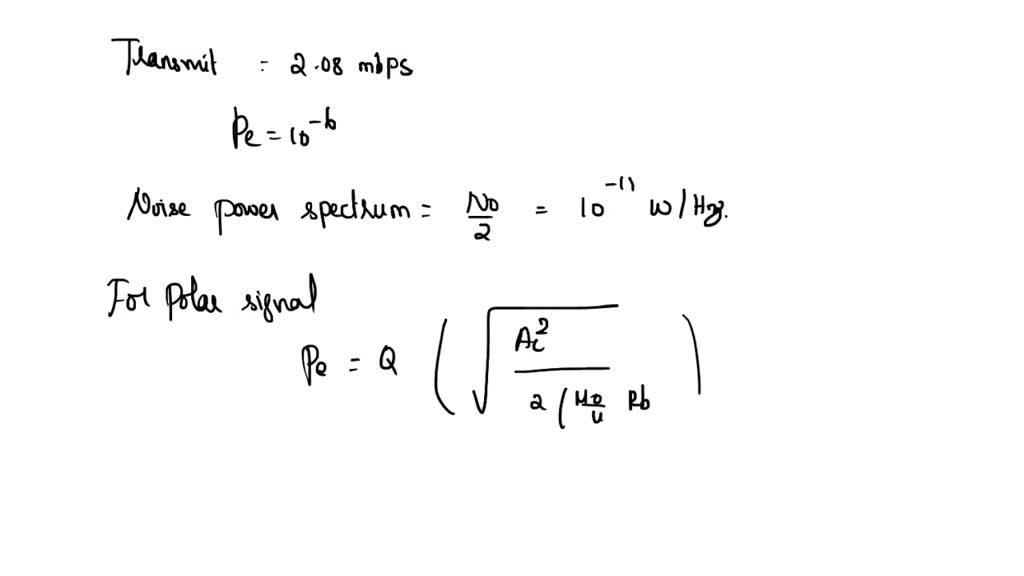 Transmit = 2.08 mbps
Pe = 10^-6
Noise power spectrum = N0/2 = 10^-11 W/Hz.
For Polar signal
Pe = Q ( √ Ac^2 / 2 ( N0/4 Rb )